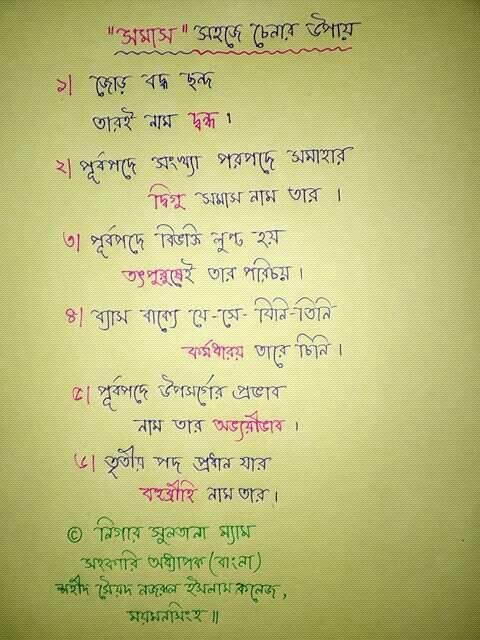 "সমাস" সহজে চেনার উপায়
১| জোড় বদ্ধ ছন্দ
তারই নাম দ্বন্দ্ব ।
২| পূর্বপদে সংখ্যা পরপদে সমাহার
দ্বিগু সমাস নাম তার ।
৩| পূর্বপদে বিভক্তি লুপ্ত হয়
তৎপুরুষেই তার পরিচয় ।
৪| ব্যাস বাক্যে যে-সে- যিনি-তিনি
কর্মধারয় তারে চিনি ।
৫| পূর্বপদে উপসর্গের প্রভাব
নাম তার অভ্যয়ীভাব ।
৬| তৃতীয় পদ প্রধান যার
বহুব্রীহি নাম তার ।
© নিগার সুলতানা ম্যাম
সহকারি অধ্যাপক (বাংলা)
শহীদ সৈয়দ নজরুল ইসলাম কলেজ,
ময়মনসিংহ ॥